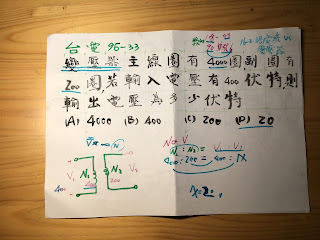 台電96-33
變壓器主線圈有4000圈,副圈有
200圈,若輸入電壓有400伏特,則
輸出電壓為多少伏特
(A) 4000 (B) 400 (C) 200 (D) 20
N∝V
N₁:N₂ = V₁:V₂
4000:200 = 400:X
X=20
400
N₁
N₂
200